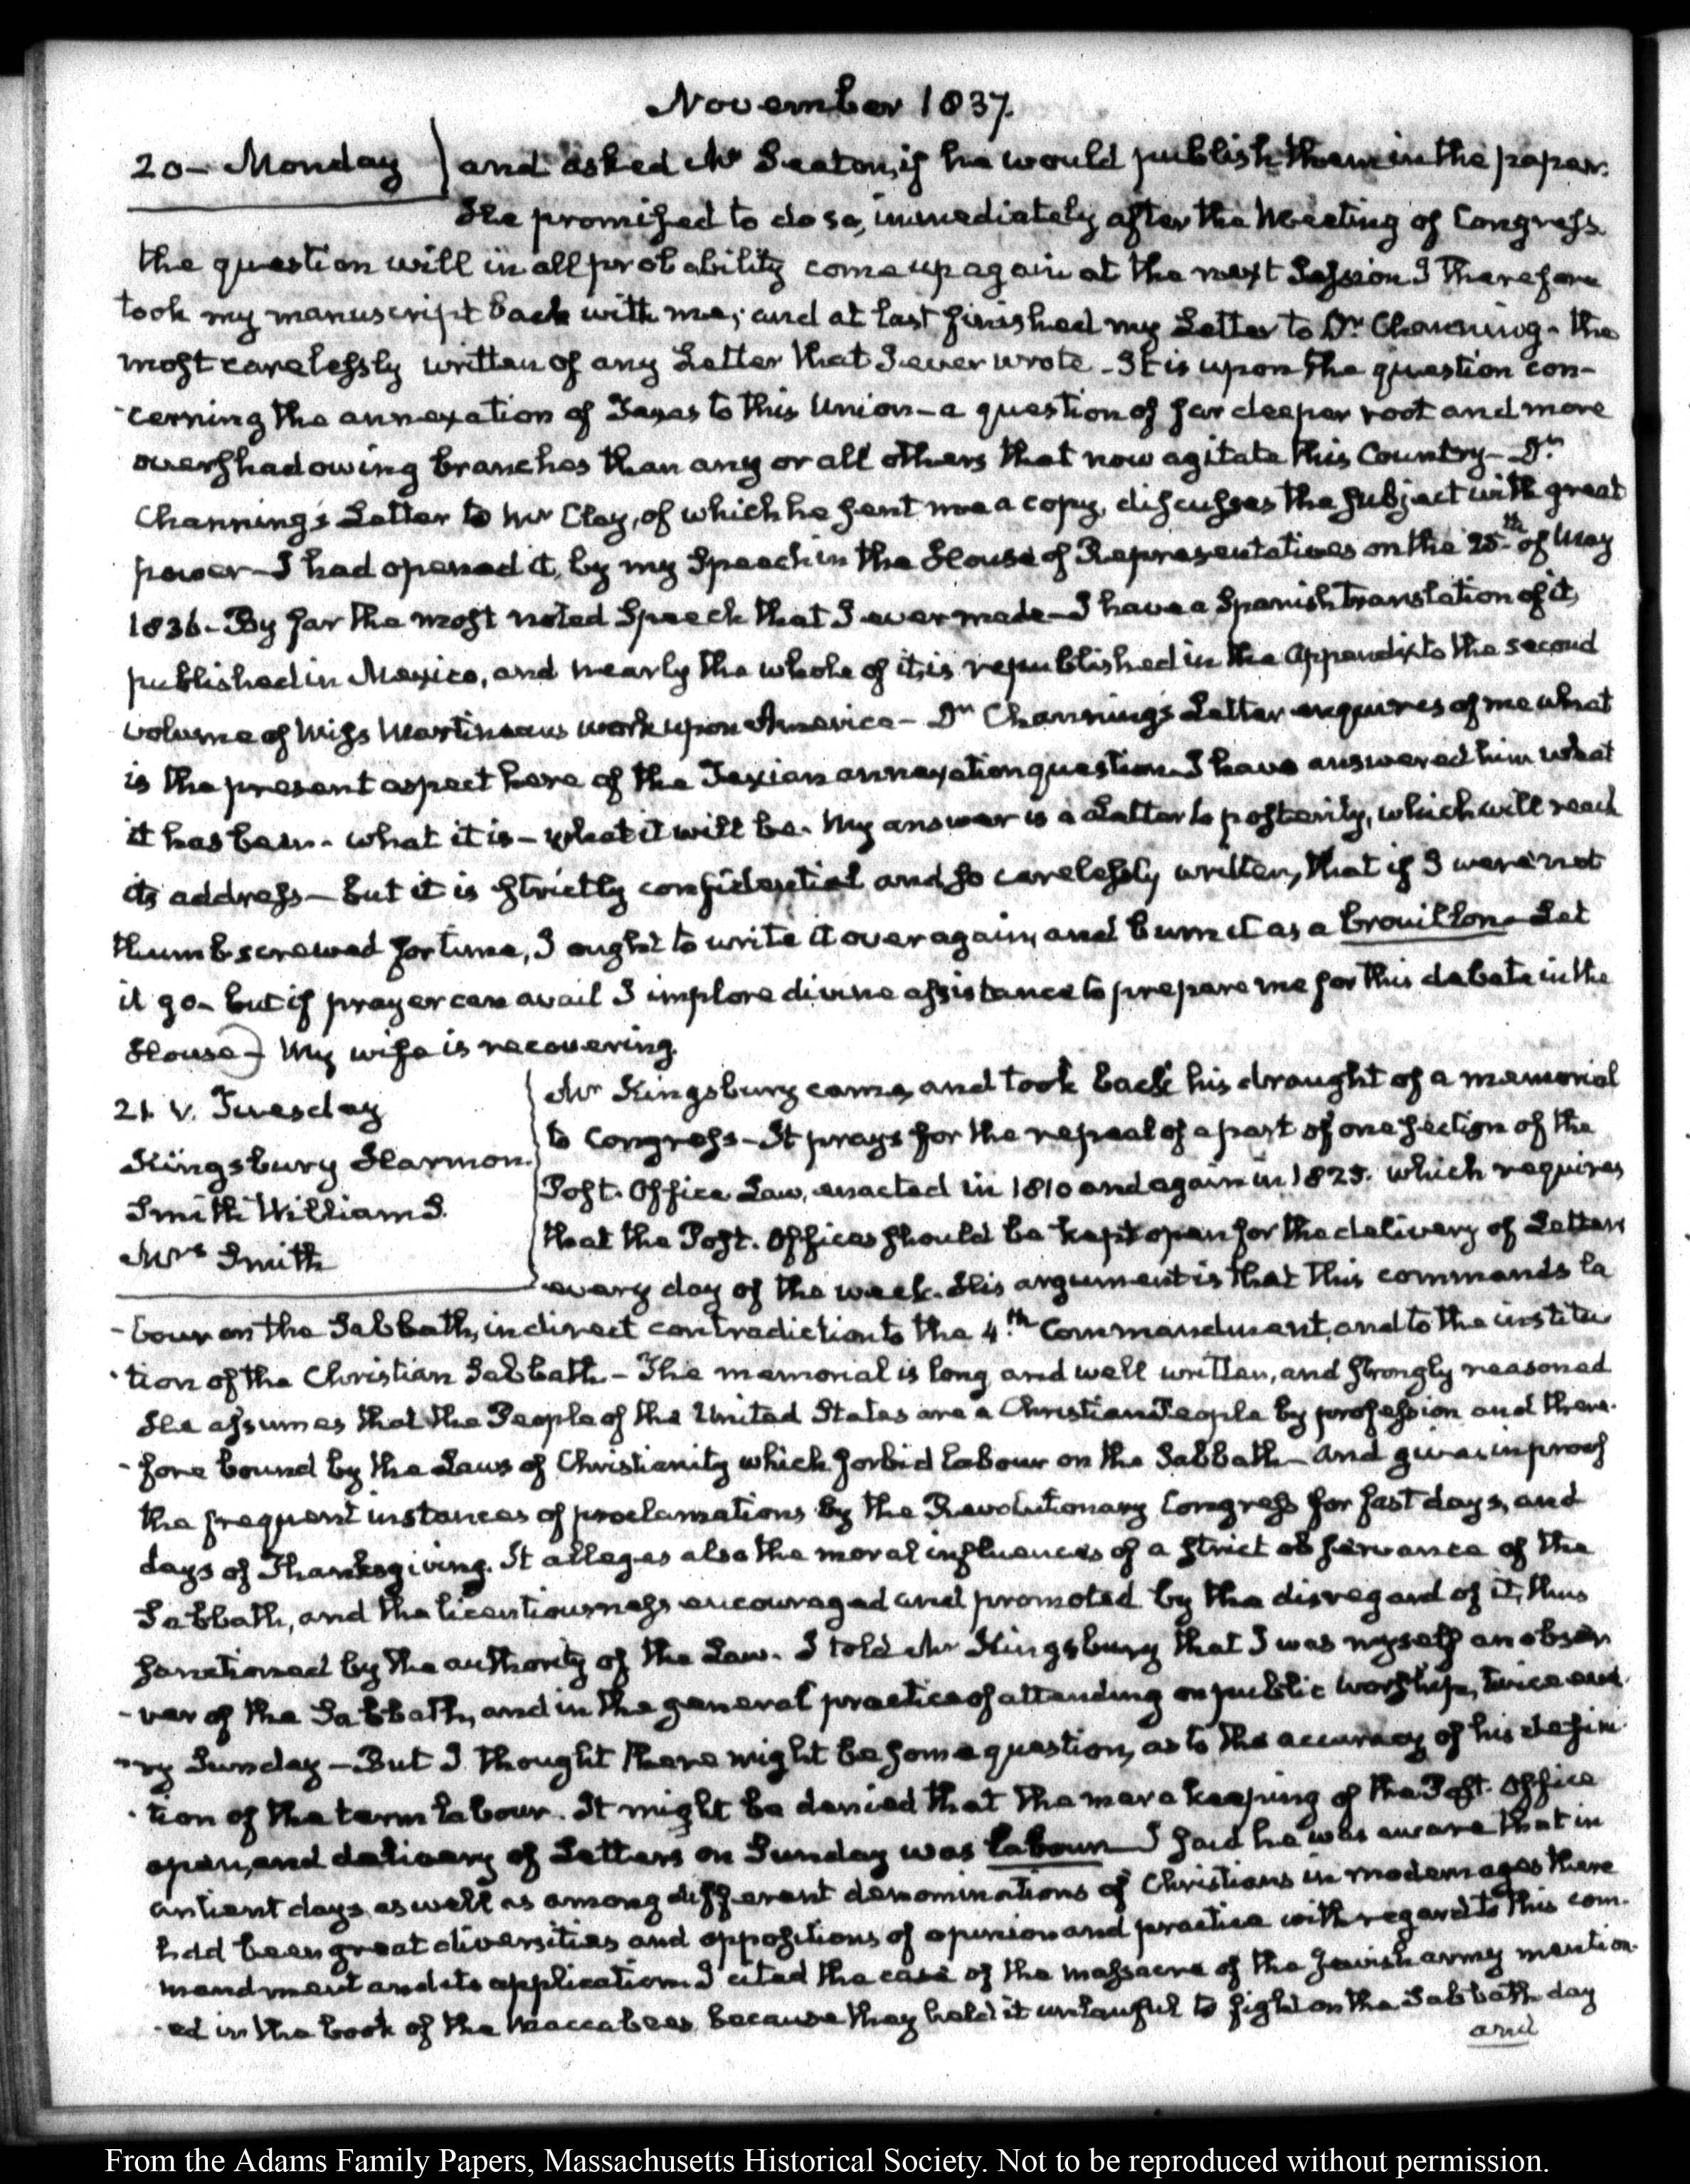 November 1837.
20 - Monday } and asked Mr Seaton, if he would publish them in the paper.
He promised to do so, immediately after the Meeting of Congress.
the question will in all probability come up again at the next Session I therefore
took my manuscript back with me; and at last finished my Letter to Dr. Channing - the
most carelessly written of any Letter that I ever wrote - It is upon the question con-
-cerning the annexation of Texas to this Union - a question of far deeper root and more
overshadowing branches than any or all others that now agitate this Country - Dr.
Channing's Letter to Mr Clay, of which he sent me a copy, discusses the subject with great
power - I had opened it, by my Speech in the House of Representatives on the 25th of May
1836 - By far the most noted Speech that I ever made - I have a Spanish translation of it,
published in Mexico, and nearly the whole of it, is republished in the Appendix to the second
volume of Miss Martineaus work upon America - Dr Channing's Letter enquires of me what
is the present aspect here of the Texian annexation question. I have answered him what
it has been - what it is - what it will be. My answer is a Letter to posterity, which will reach
its address - but it is strictly confidential and so carelessly written, that if I were not
thumbscrewed for time, I ought to write it over again, and burn it as a brouillon - Let
it go - but if prayer can avail I implore divine assistance to prepare me for this debate in the
House - My wife is recovering.
21. V. Tuesday
Kingsbury Harmon.
Smith William S.
Mrs Smith
Mr Kingsbury came, and took back his draught of a memorial
to Congress - It prays for the repeal of a part of one section of the
Post-Office Law, enacted in 1810 and again in 1825. which requires
that the Post-Offices should be kept open for the delivery of Letters
every day of the week. His argument is that this commands la
-bour on the Sabbath, in direct contradiction to the 4th Commandment, and to the institu
-tion of the Christian Sabbath - The memorial is long and well written, and strongly reasoned
He assumes that the People of the United States are a Christian People by profession and there-
-fore bound by the Laws of Christianity which forbid labour on the Sabbath - and gives in proof
the frequent instances of proclamations by the Revolutionary Congress for fast days, and
days of Thanksgiving. It alleges also the moral influences of a strict observance of the
Sabbath, and the licentiousness encouraged and promoted by the disregard of it, thus
sanctioned by the authority of the Law. I told Mr Kingsbury that I was myself an obser
-ver of the Sabbath, and in the general practice of attending on public worship, twice eve
-ry Sunday - But I thought there might be some question, as to the accuracy of his defini
-tion of the term labour. It might be denied that the mere keeping of the Post-Office
open, and delivery of Letters on Sunday was labour - I said he was aware that in
antient days as well as among different denominations of Christians in modern ages there
had been great diversities and oppositions of opinion and practice with regard to this com-
mandment and its application. I cited the case of the massacre of the Jewish army mention-
-ed in the book of the Maccabees, because they held it unlawful to fight on the Sabbath day
and
From the Adams Family Papers, Massachusetts Historical Society. Not to be reproduced without permission.